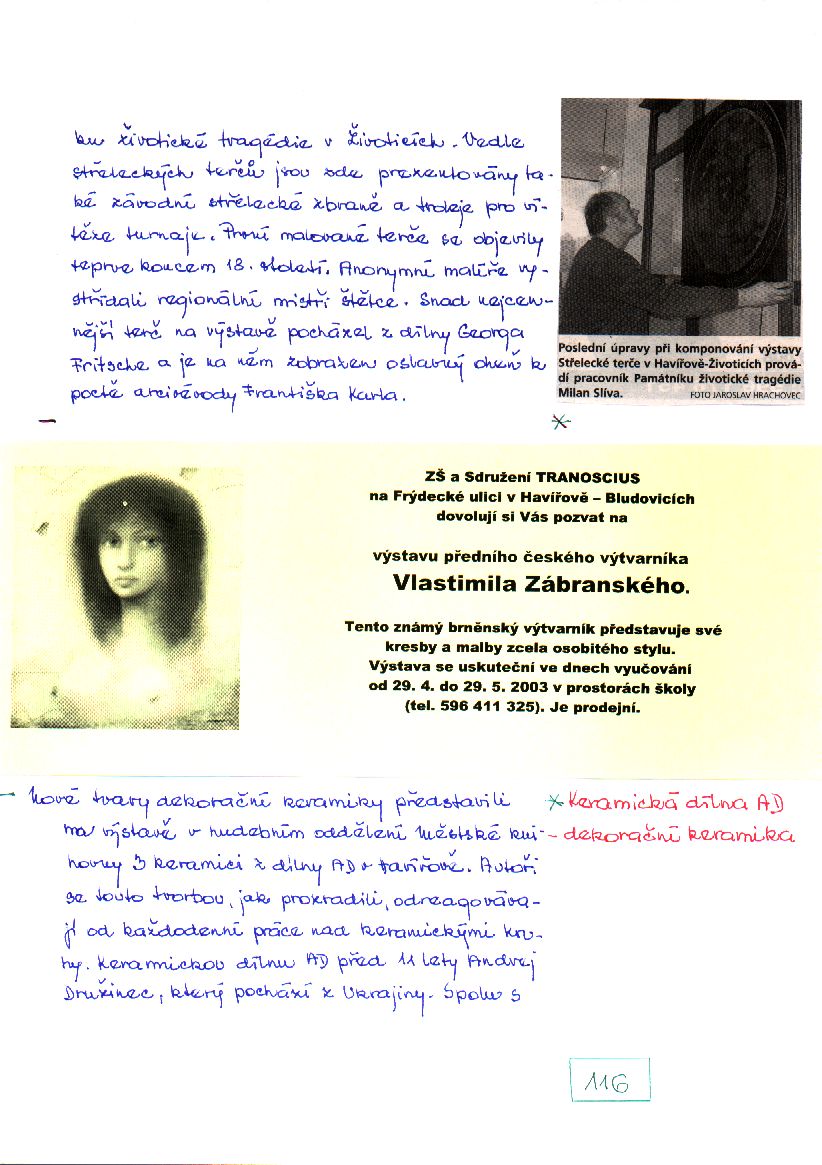 ku životické tragédie v Životicích. Vedle
střeleckých terčů jsou zde prezentovány ta-
ké závodní střelecké zbraně a trofeje pro ví-
těze turnaje. První malované terče se objevily
teprve koncem 18. století. Anonymní malíře vy-
střídali regionální mistři štětce. Snad nejcen-
nější terč na výstavě pochází z dílny Georga
Fritsche a je na něm zobrazen oslavný oheň k
poctě arcivévody Františka Karla.
Poslední úpravy při komponování výstavy
Střelecké terče v Havířově-Životicích prová-
dí pracovník Památníku životické tragédie
Milan Slíva. FOTO JAROSLAV HRACHOVEC
ZŠ a Sdružení TRANOSCIUS
na Frýdecké ulici v Havířově – Bludovicích
dovolují si Vás pozvat na
výstavu předního českého výtvarníka
Vlastimila Zábranského.
Tento známý brněnský výtvarník představuje své
kresby a malby zcela osobitého stylu.
Výstava se uskuteční ve dnech vyučování
od 29. 4. do 29. 5. 2003 v prostorách školy
(tel. 596 411 325). Je prodejní.
- Nové tvary dekorační keramiky představili
na výstavě v hudebním oddělení Městské kni-
hovny 3 keramici z dílny AD v Havířově. Autoři
se touto tvorbou, jak prozradili, odreagováva-
jí od každodenní práce nad keramickými kru-
hy. Keramickou dílnu AD před 11 lety Andrej
Družinec, který pochází z Ukrajiny. Spolu s
* Keramická dílna AD
- dekorační keramika
116